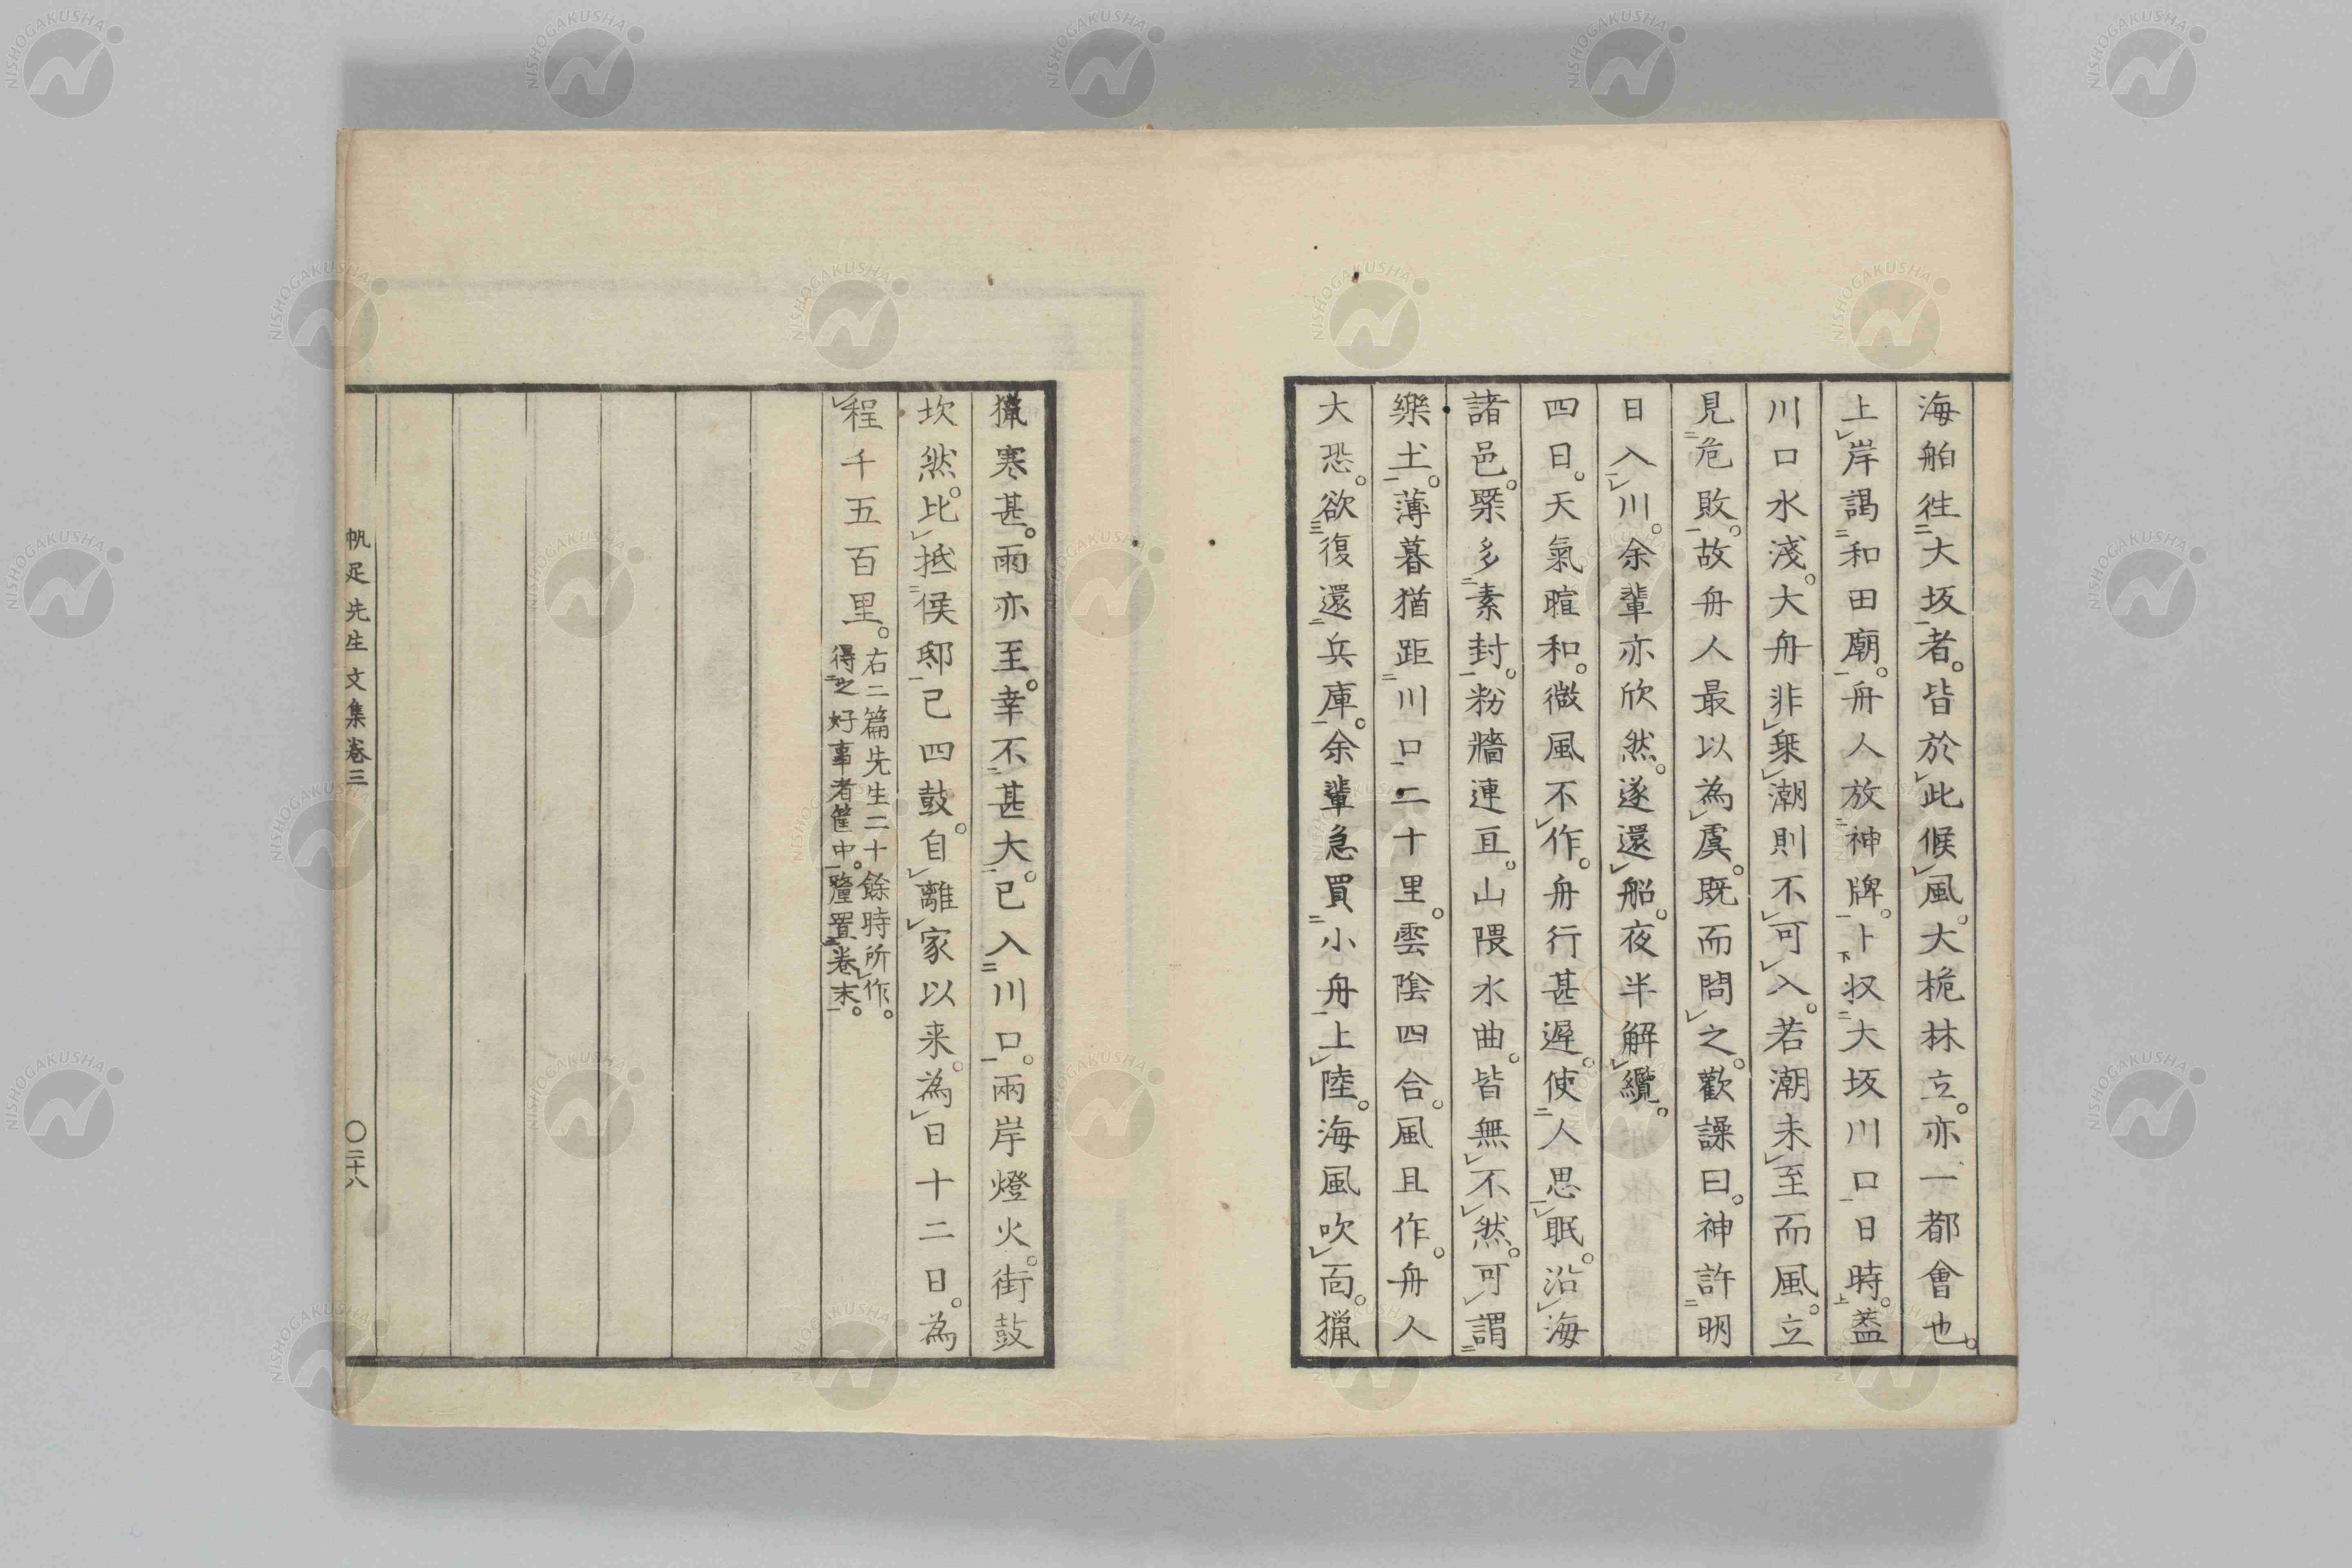 海舶往大坂者。皆於此候風。大桅林立。亦一都會也。
上岸謁和田廟。舟人放神牌。卜収大坂川口日時。蓋
川口水淺。大舟非乗潮則不可入。若潮未至而風立
見危敗。故舟人最以為虞。既而問之。歡譟曰。神許明
日入川。余輩亦欣然。遂還船。夜半解纜。
四日。天氣暄和。微風不作。舟行甚遲。使人思眠。沿海
諸邑。槩多素封。粉牆連亘。山隈水曲。皆無不然。可謂
樂土。薄暮猶距川口二十里。雲陰四合。風且作。舟人
大恐。欲復還兵庫。余輩急買小舟上陸。海風吹面。獵
獵寒甚。雨亦至。幸不甚大。已入川口。兩岸燈火。街鼓
坎然。比抵侯邸已四鼓。自離家以来。為日十二日。為
程千五百里。
右二篇先生二十餘時所作。
得之好事者筐中。釐置卷末。
帆足先生文集卷三
〇二十八
NISHOGAKUSHA